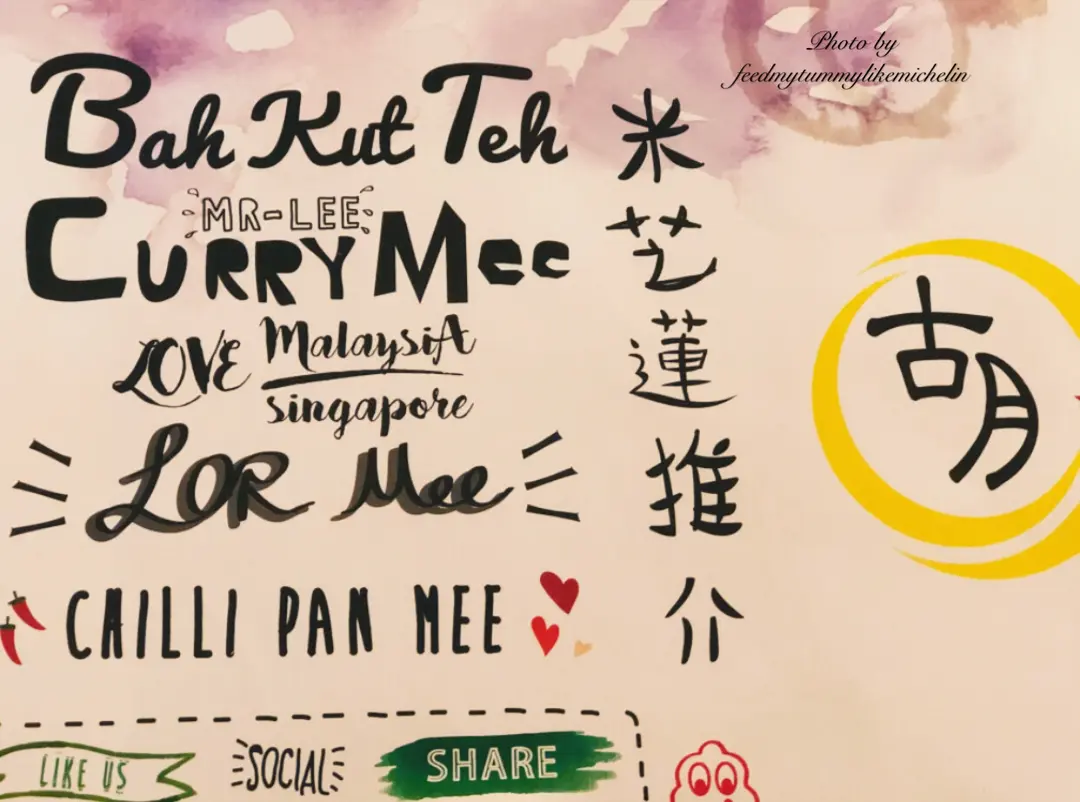 Photo by
feedmytummylikemichelin
Bah Kut Teh
MR-LEE
CURRY Mee
LOVE Malaysia
singapore
LOR Mee
CHILLI PAN MEE
米艺蓮推介
胡
LIKE US
SOCIAL
SHARE